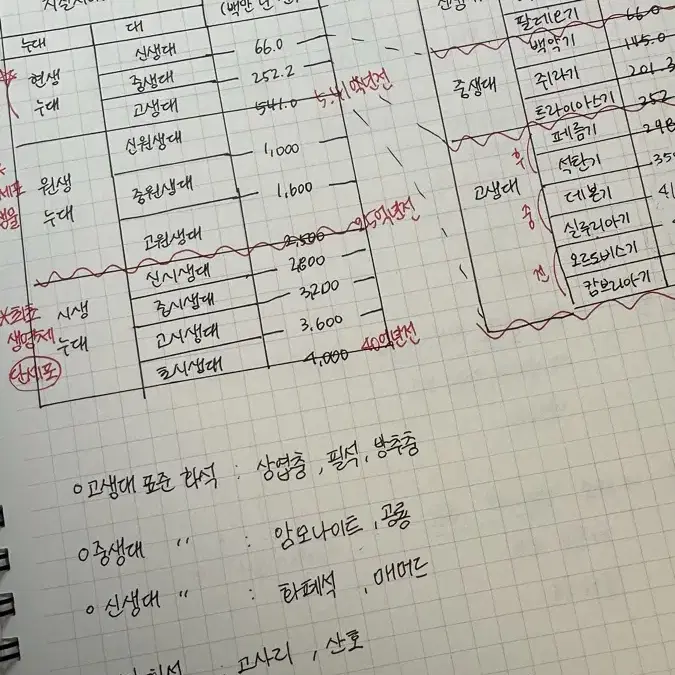 (백만 년
누대 대
현생 누대
신생대 66.0
중생대 252.2
고생대 541.0 5.41억년전
원생 누대
신원생대 1,000
중원생대 1,600
고원생대 2,500 25억년전
시생 누대
신시생대 2800
중시생대 3200
고시생대 3,600
초시생대 4,000 40억년전
*최초
생명체
단세포
팔레오기 66.0
중생대
백악기 145.0
쥐라기 201.3
트라이아스기 252
고생대
후
페름기 298
석탄기 35
중
데본기 41
실루리아기
전
오르도비스기
캄브리아기
o 고생대 표준 화석 : 상엽충, 필석, 방추충
o 중생대 〃 : 암모나이트, 공룡
o 신생대 〃 : 화폐석, 매머드
: 고사리, 산호